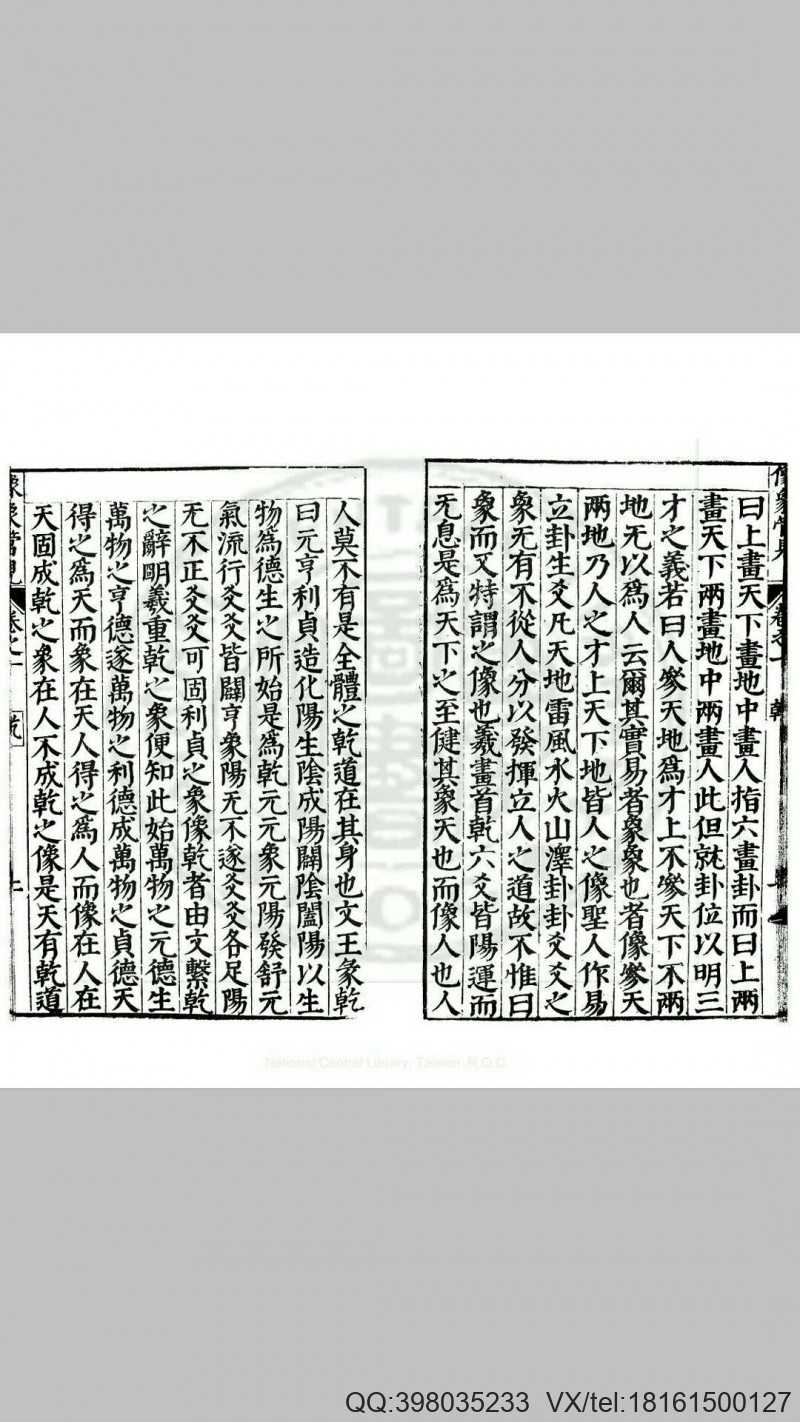 曰上畫天下畫地中畫人指六畫卦而曰上兩
畫天下兩畫地中兩畫人此但就卦位以明三
才之義若曰人參天地爲才上不參天下不兩
地无以爲人云爾其實易者象象也者像參天
兩地乃人之才上天下地皆人之像聖人作易
立卦生爻凡天地雷風水火山澤卦卦爻爻之
象无有不從人分以發揮立人之道故不惟曰
象而又特謂之像也羲畫首乾六爻皆陽運而
无息是爲天下之至健其象天也而像人也人
人莫不有是全體之乾道在其身也文王彖乾
曰元亨利貞造化陽生陰成陽闢陰闔陽以生
物爲德生之所始是爲乾元元象元陽發舒元
氣流行爻爻皆闢亨象陽无不遂爻爻各足陽
无不正爻爻可固利貞之象像乾者由文繫乾
之辭明羲重乾之象便知此始萬物之元德生
萬物之亨德遂萬物之利德成萬物之貞德天
得之爲天而象在天人得之爲人而像在人在
天固成乾之象在人不成乾之像是天有乾道
卷之一 乾
National Central Library, Taiwan, R.O.C.
QQ:398035233 VX/tel:18161500127